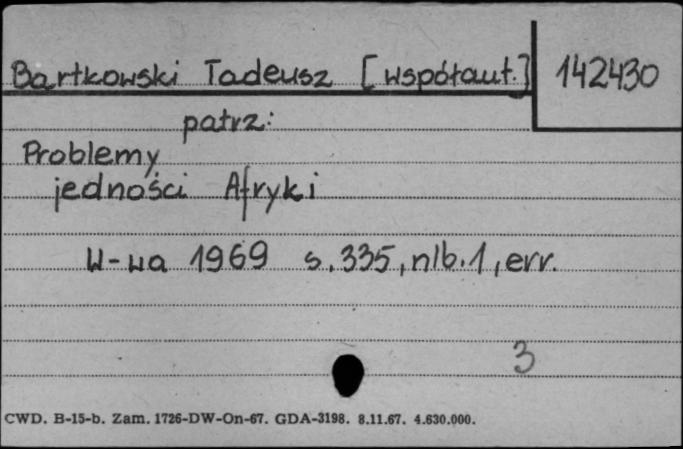 Bartkowski Tadeusz [współaut.] 142430
patrz:
Problemy
jedności Afryki
W-wa 1969 s. 335, nlb. 1, err.
3
CWD. B-15-b. Zam. 1726-DW-On-67. GDA-3198. 8.11.67. 4.630.000.